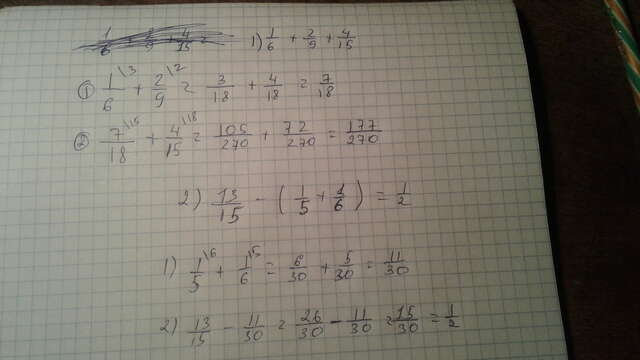 1) 1/6 + 2/9 + 4/15
① 1/6 \3 + 2/9 \2 = 3/18 + 4/18 = 7/18
② 7/18 \15 + 4/15 \18 = 105/270 + 72/270 = 177/270
2) 13/15 - (1/5 + 1/6) = 1/2
1) 1/5 \6 + 1/6 \5 = 6/30 + 5/30 = 11/30
2) 13/15 - 11/30 = 26/30 - 11/30 = 15/30 = 1/2